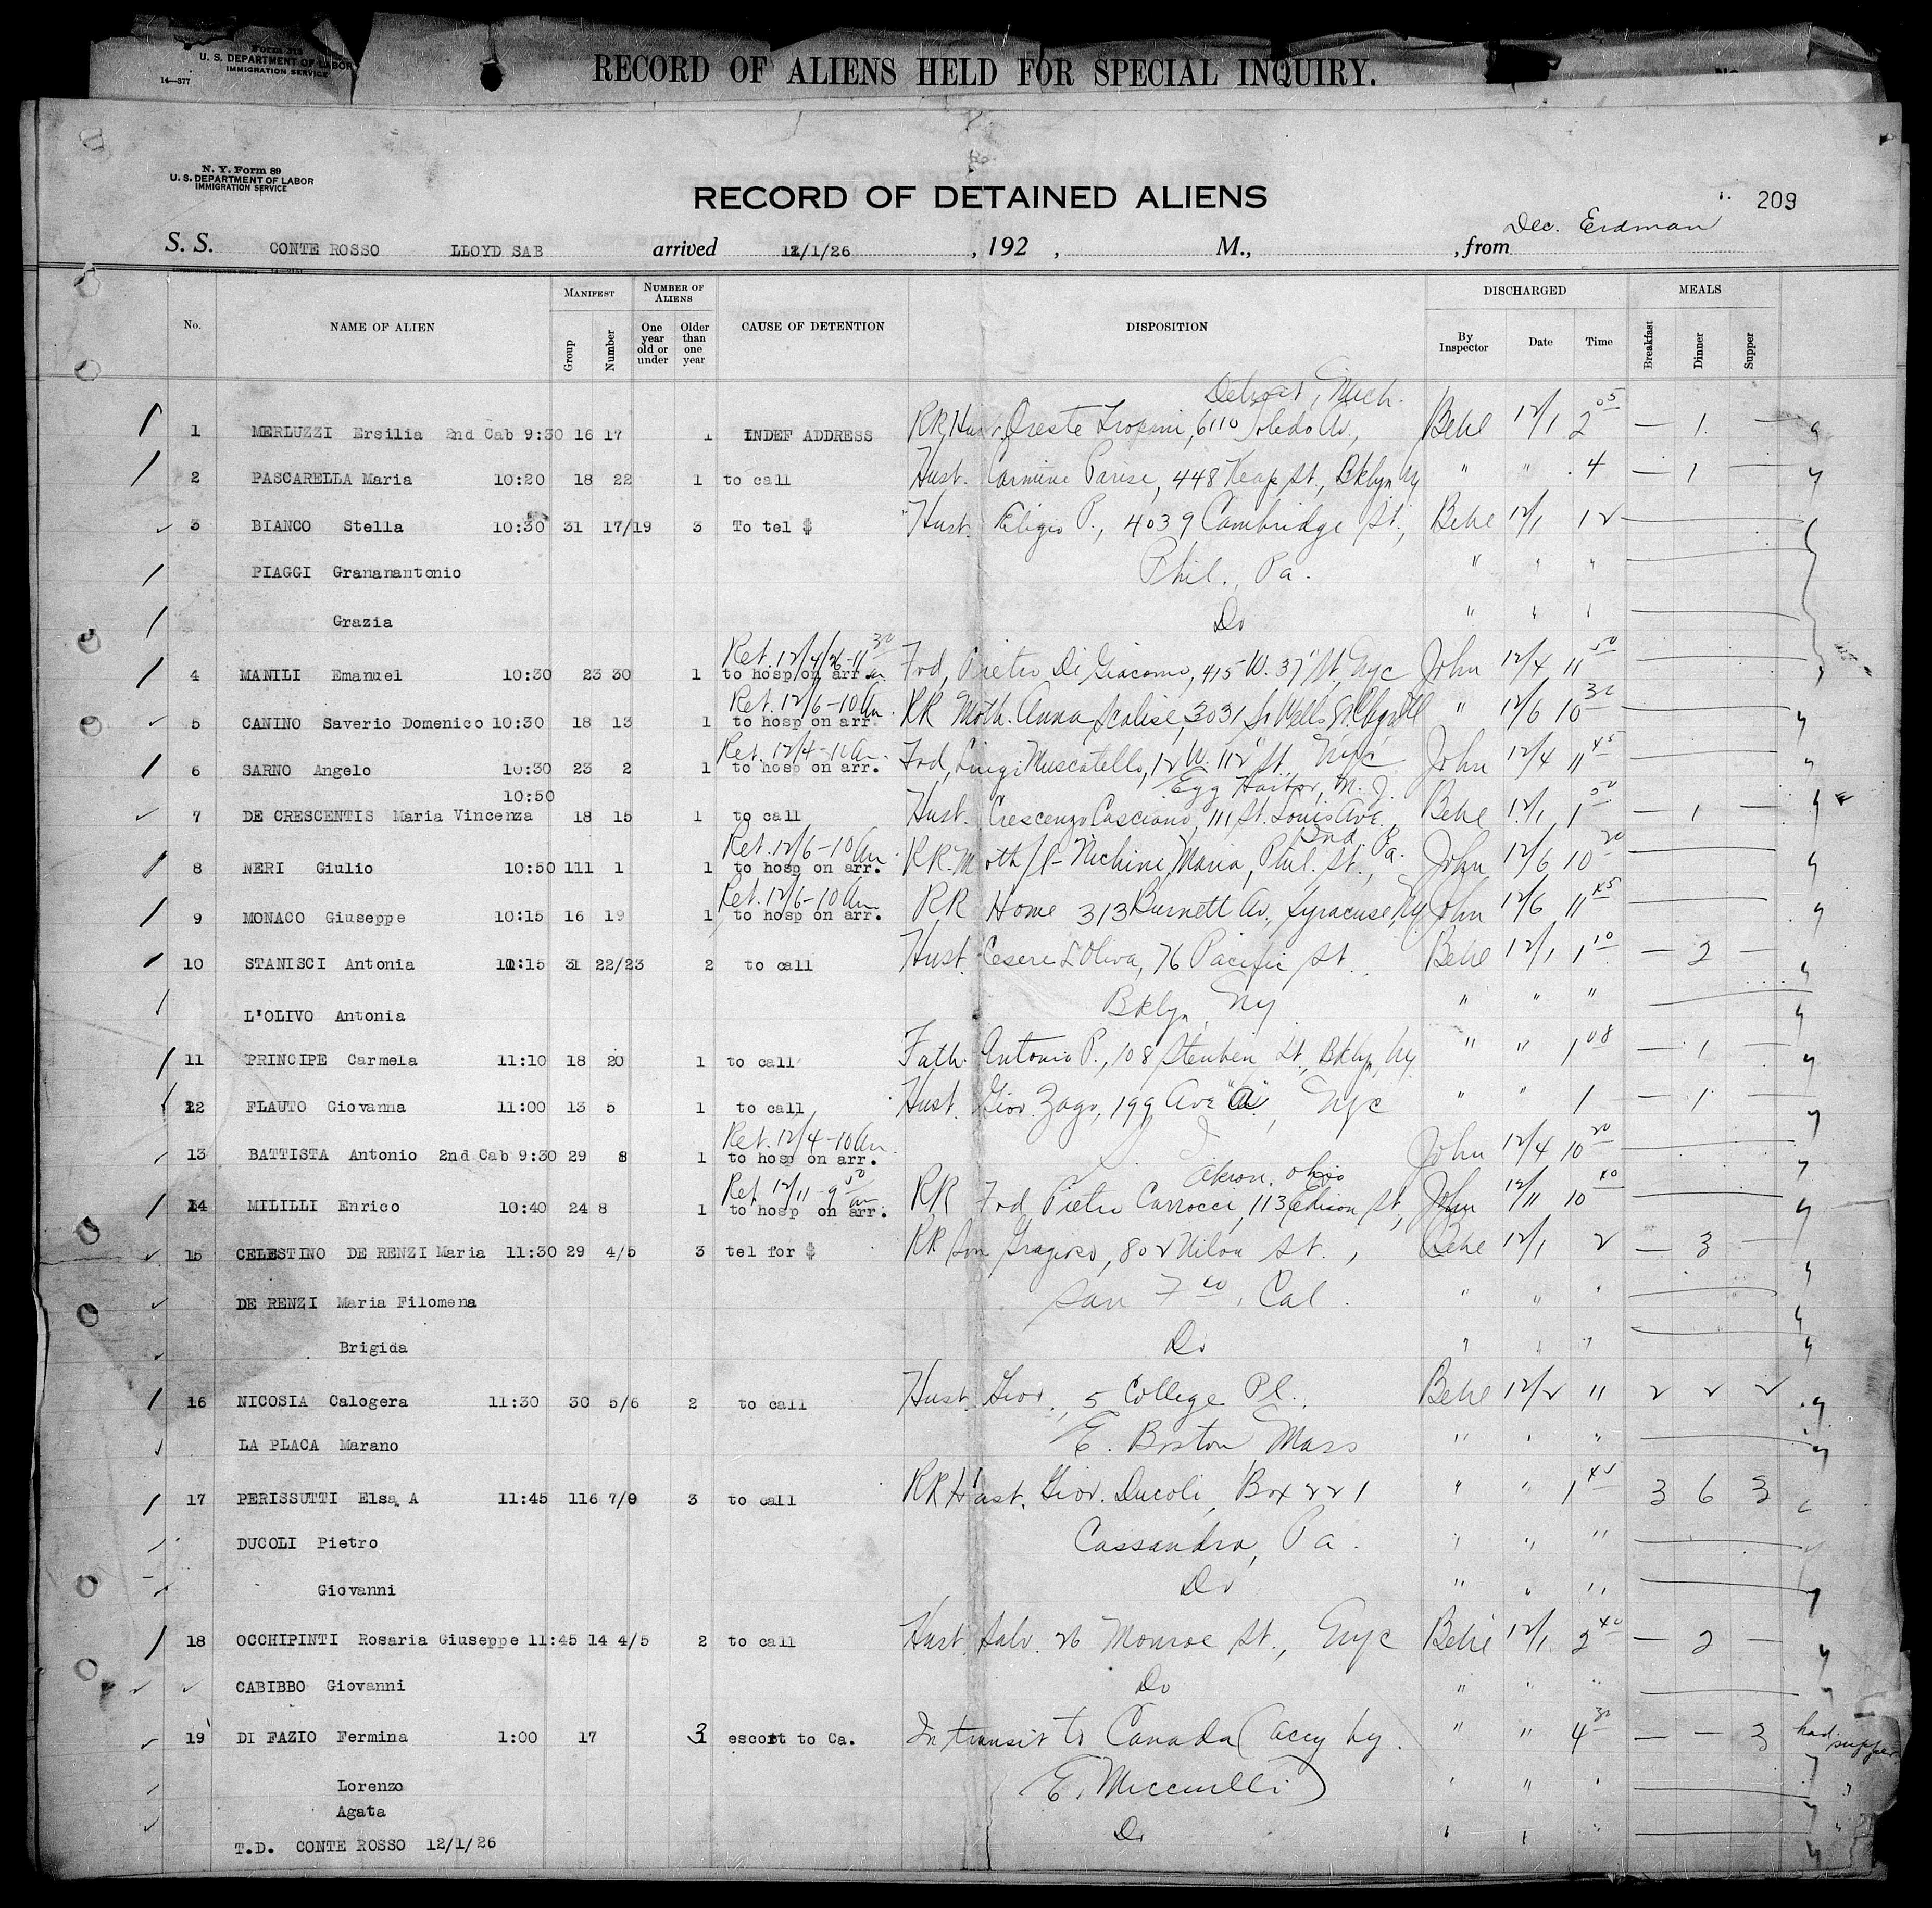 Form 218
U. S. DEPARTMENT OF LABOR
IMMIGRATION SERVICE
14—377
RECORD OF ALIENS HELD FOR SPECIAL INQUIRY.
No.
N. Y. Form 89
U. S. DEPARTMENT OF LABOR
IMMIGRATION SERVICE
RECORD OF DETAINED ALIENS
209
Dec. Erdman
S. S. CONTE ROSSO LLOYD SAB arrived 12/1/26 , 192 , M., , from
No. NAME OF ALIEN MANIFEST Group Number NUMBER OF ALIENS One year old or under Older than one year CAUSE OF DETENTION DISPOSITION DISCHARGED By Inspector Date Time MEALS Breakfast Dinner Supper
Detroit, Mich.
1 MERLUZZI Ersilia 2nd Cab 9:30 16 17 1 INDEF ADDRESS RR Oreste 6110 Toledo Av., Behe 12/1 2 05 — 1 —
2 PASCARELLA Maria 10:20 18 22 1 to call Hust. Carmine Parise, 448 Keap St., Bklyn Ny " " 4 — 1 —
3 BIANCO Stella 10:30 31 17/19 3 To tel $ Hust. Eligio P., 4039 Cambridge St., Behe 12/1 12
PIAGGI Grananantonio Phil., Pa. " " "
Grazia Do " " "
Ret. 12/4/26-11 30
4 MANILI Emanuel 10:30 23 30 1 to hosp on arr. Frd, Pietro Di Giacomo, 415 W. 37" St, Nyc John 12/4 11 50
Ret. 12/6-10 Am.
5 CANINO Saverio Domenico 10:30 18 13 1 to hosp on arr. RR Moth. Anna Scalise, 3031 So Wells St. " 12/6 10 30
Ret. 12/4-10 Am.
6 SARNO Angelo 10:30 23 2 1 to hosp on arr. Frd, Luigi Muscatello, 12 W. 112" St., Nyc John 12/4 11 45
10:50 Egg Harbor, N. J.
7 DE CRESCENTIS Maria Vincenza 18 15 1 to call Hust. Crescenzo Casciano, 111 St. Louis Ave. Behe 12/1 1 50 — 1 —
Ret. 12/6-10 Am. Pa.
8 NERI Giulio 10:50 111 1 1 to hosp on arr. RR Moth Nichini Maria, Phil. St., John 12/6 10 20
Ret. 12/6-10 Am
9 MONACO Giuseppe 10:15 16 19 1 to hosp on arr. RR Home 313 Burnett Av., Syracuse, Ny. John 12/6 11 45
10 STANISCI Antonia 11:15 31 22/23 2 to call Hust. Cesere L'Oliva, 76 Pacific St. Behe 12/1 1 10 — 2 —
L'OLIVO Antonia Bklyn, Ny " " "
11 PRINCIPE Carmela 11:10 18 20 1 to call Fath. Antonio P., 108 Steuben St., Bklyn, Ny. " " 1 08 — 1 —
12 FLAUTO Giovanna 11:00 13 5 1 to call Hust. Giov. Zago, 199 Ave "A", Nyc " " 1 — 1 —
Ret. 12/4-10 Am
13 BATTISTA Antonio 2nd Cab 9:30 29 8 1 to hosp on arr. John 12/4 10 20
Ret. 12/11-9 50 am Akron, Ohio
14 MILILLI Enrico 10:40 24 8 1 to hosp on arr. RR Frd Pietro Carrocci, 113 Edison St, John 12/11 10 40
15 CELESTINO DE RENZI Maria 11:30 29 4/5 3 tel for $ RR Son 802 St., Behe 12/1 2 — 3 —
DE RENZI Maria Filomena San Fco, Cal. " " "
Brigida Do " " "
16 NICOSIA Calogera 11:30 30 5/6 2 to call Hust. Giov., 5 College Pl. Behe 12/2 11 2 2 2
LA PLACA Marano E. Boston Mass " " "
17 PERISSUTTI Elsa A 11:45 116 7/9 3 to call RR Hust. Giov. Ducoli, Box 221 " " 1 45 3 6 3
DUCOLI Pietro Cassandra, Pa. " " "
Giovanni Do " " "
18 OCCHIPINTI Rosaria Giuseppe 11:45 14 4/5 2 to call Hust. Salv. 26 Monroe St., Nyc Behe 12/1 2 40 — 2 —
CABIBBO Giovanni Do " " "
19 DI FAZIO Fermina 1:00 17 3 escort to Ca. In transit to Canada (accy by " " 4 30 — — 3 had supper
Lorenzo E. Miccuelli) " " "
Agata
T.D. CONTE ROSSO 12/1/26 Do " " "